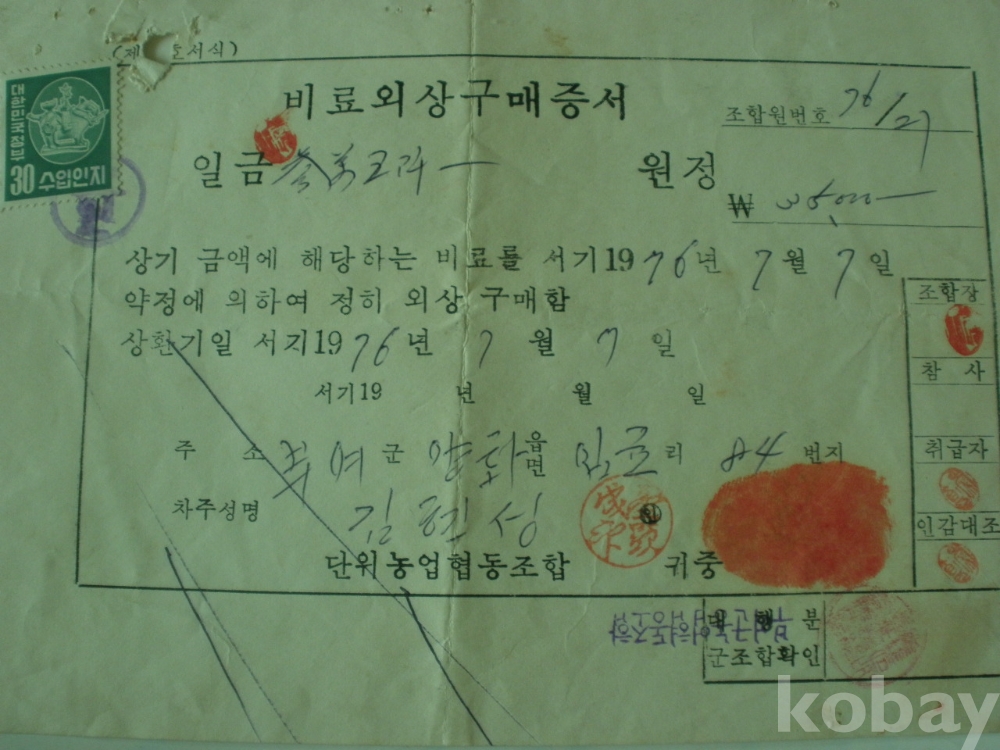 (제 호서식)
대한민국정부
30 수입인지
비료외상구매증서
조합원번호 76/27
일금 참만오천 원정
₩ 35,000
상기 금액에 해당하는 비료를 서기 1976년 7월 7일
약정에 의하여 정히 외상 구매함
상환기일 서기 1976년 7월 7일
서기 19 년 월 일
주 소 부여군 양화 읍면 리 84 번지
차주성명 김현성 인
단위농업협동조합 귀중
조합장
참 사
취급자
인감대조
부여군농업협동조합
대 행 분
군조합확인
kobay